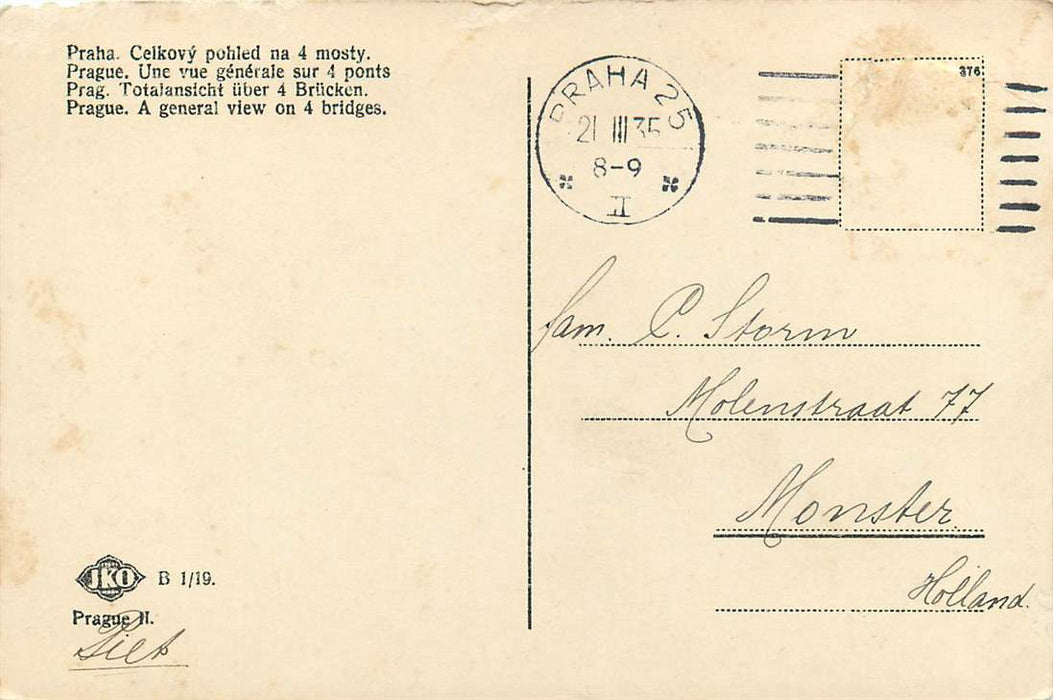 Praha. Celkový pohled na 4 mosty.
Prague. Une vue générale sur 4 ponts
Prag. Totalansicht über 4 Brücken.
Prague. A general view on 4 bridges.
PRAHA 25
21 III 35
8-9
II
376
fam. C. Storm
Molenstraat 77
Monster.
Holland.
JKO B 1/19.
Prague II.
Piet